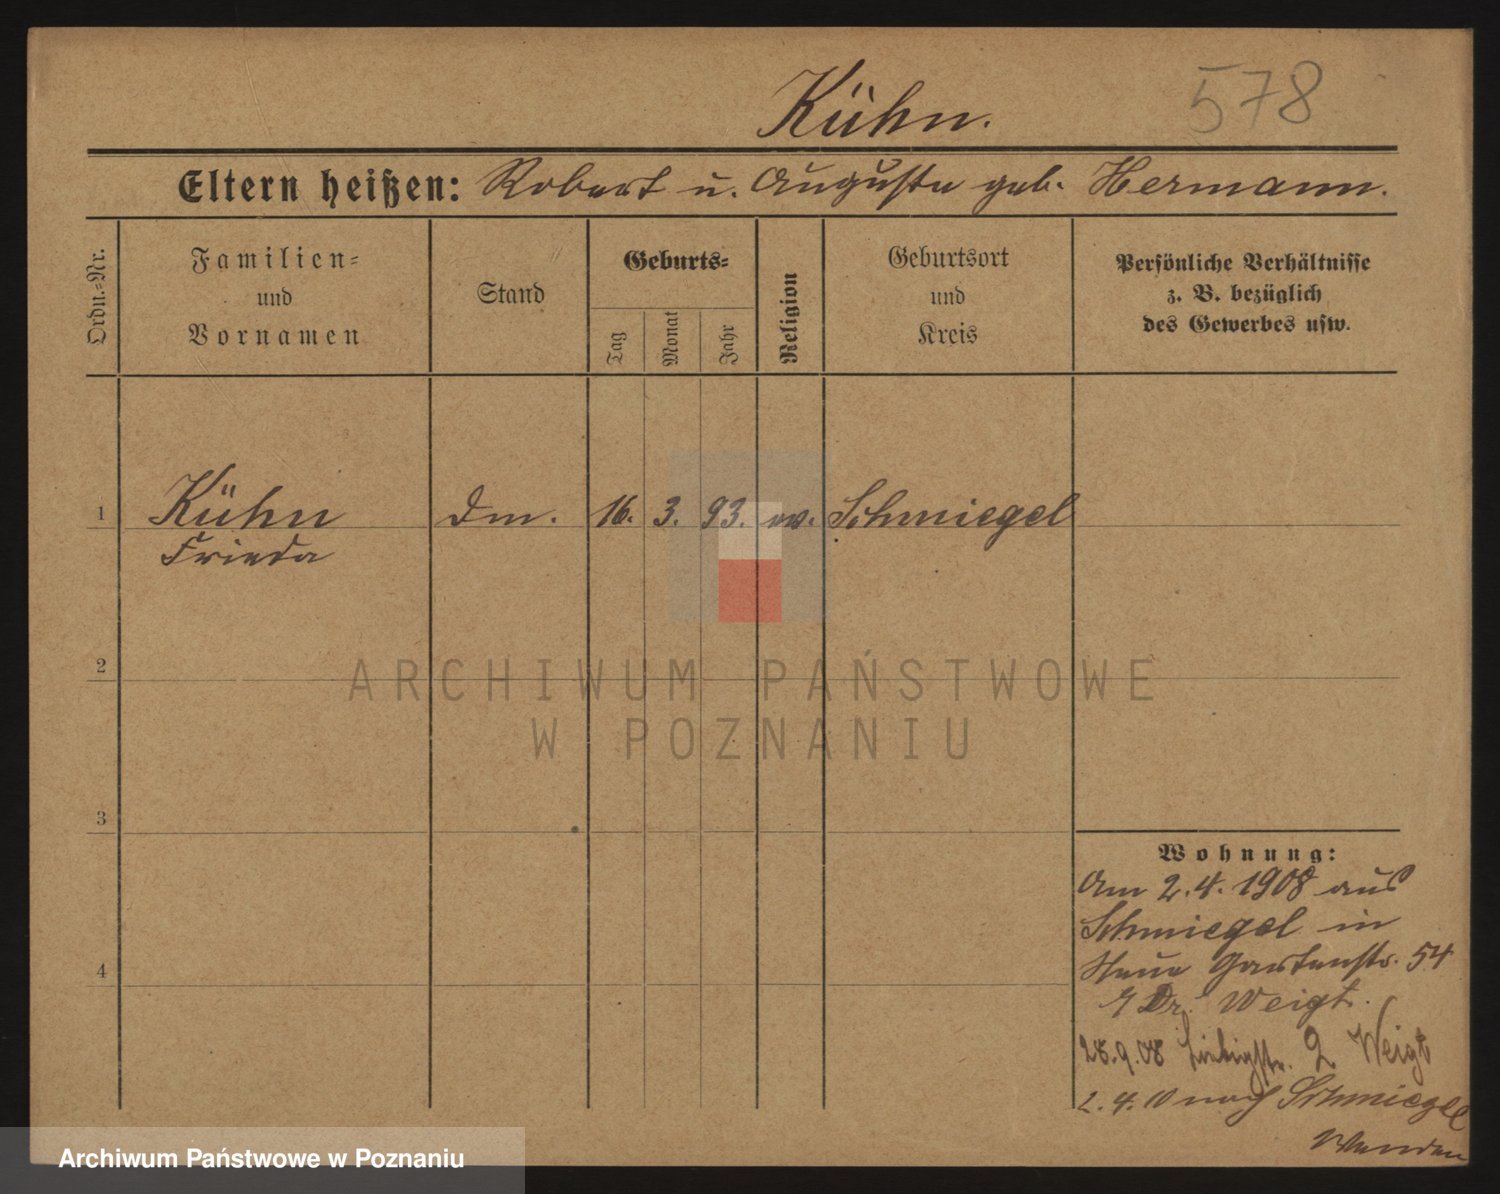 Kühn. 578
Eltern heißen: Robert u. Auguste geb. Hermann.
Ordn.=Nr.
Familien=
und
Vornamen
Stand
Geburts=
Tag
Monat
Jahr
Religion
Geburtsort
und
Kreis
Persönliche Verhältnisse
z. B. bezüglich
des Gewerbes usw.
1 Kühn Dm. 16. 3. 93. ev. Schmiegel
Frieda
2
ARCHIWUM PAŃSTWOWE
W POZNANIU
3
4
Wohnung:
Am 2.4.1908 aus
Schmiegel in
Neue Gartenstr. 54
Dr. Weigt.
28.9.08 Liebigstr. 2 Weigt
2.4.10 nach Schmiegel
Wenden
Archiwum Państwowe w Poznaniu